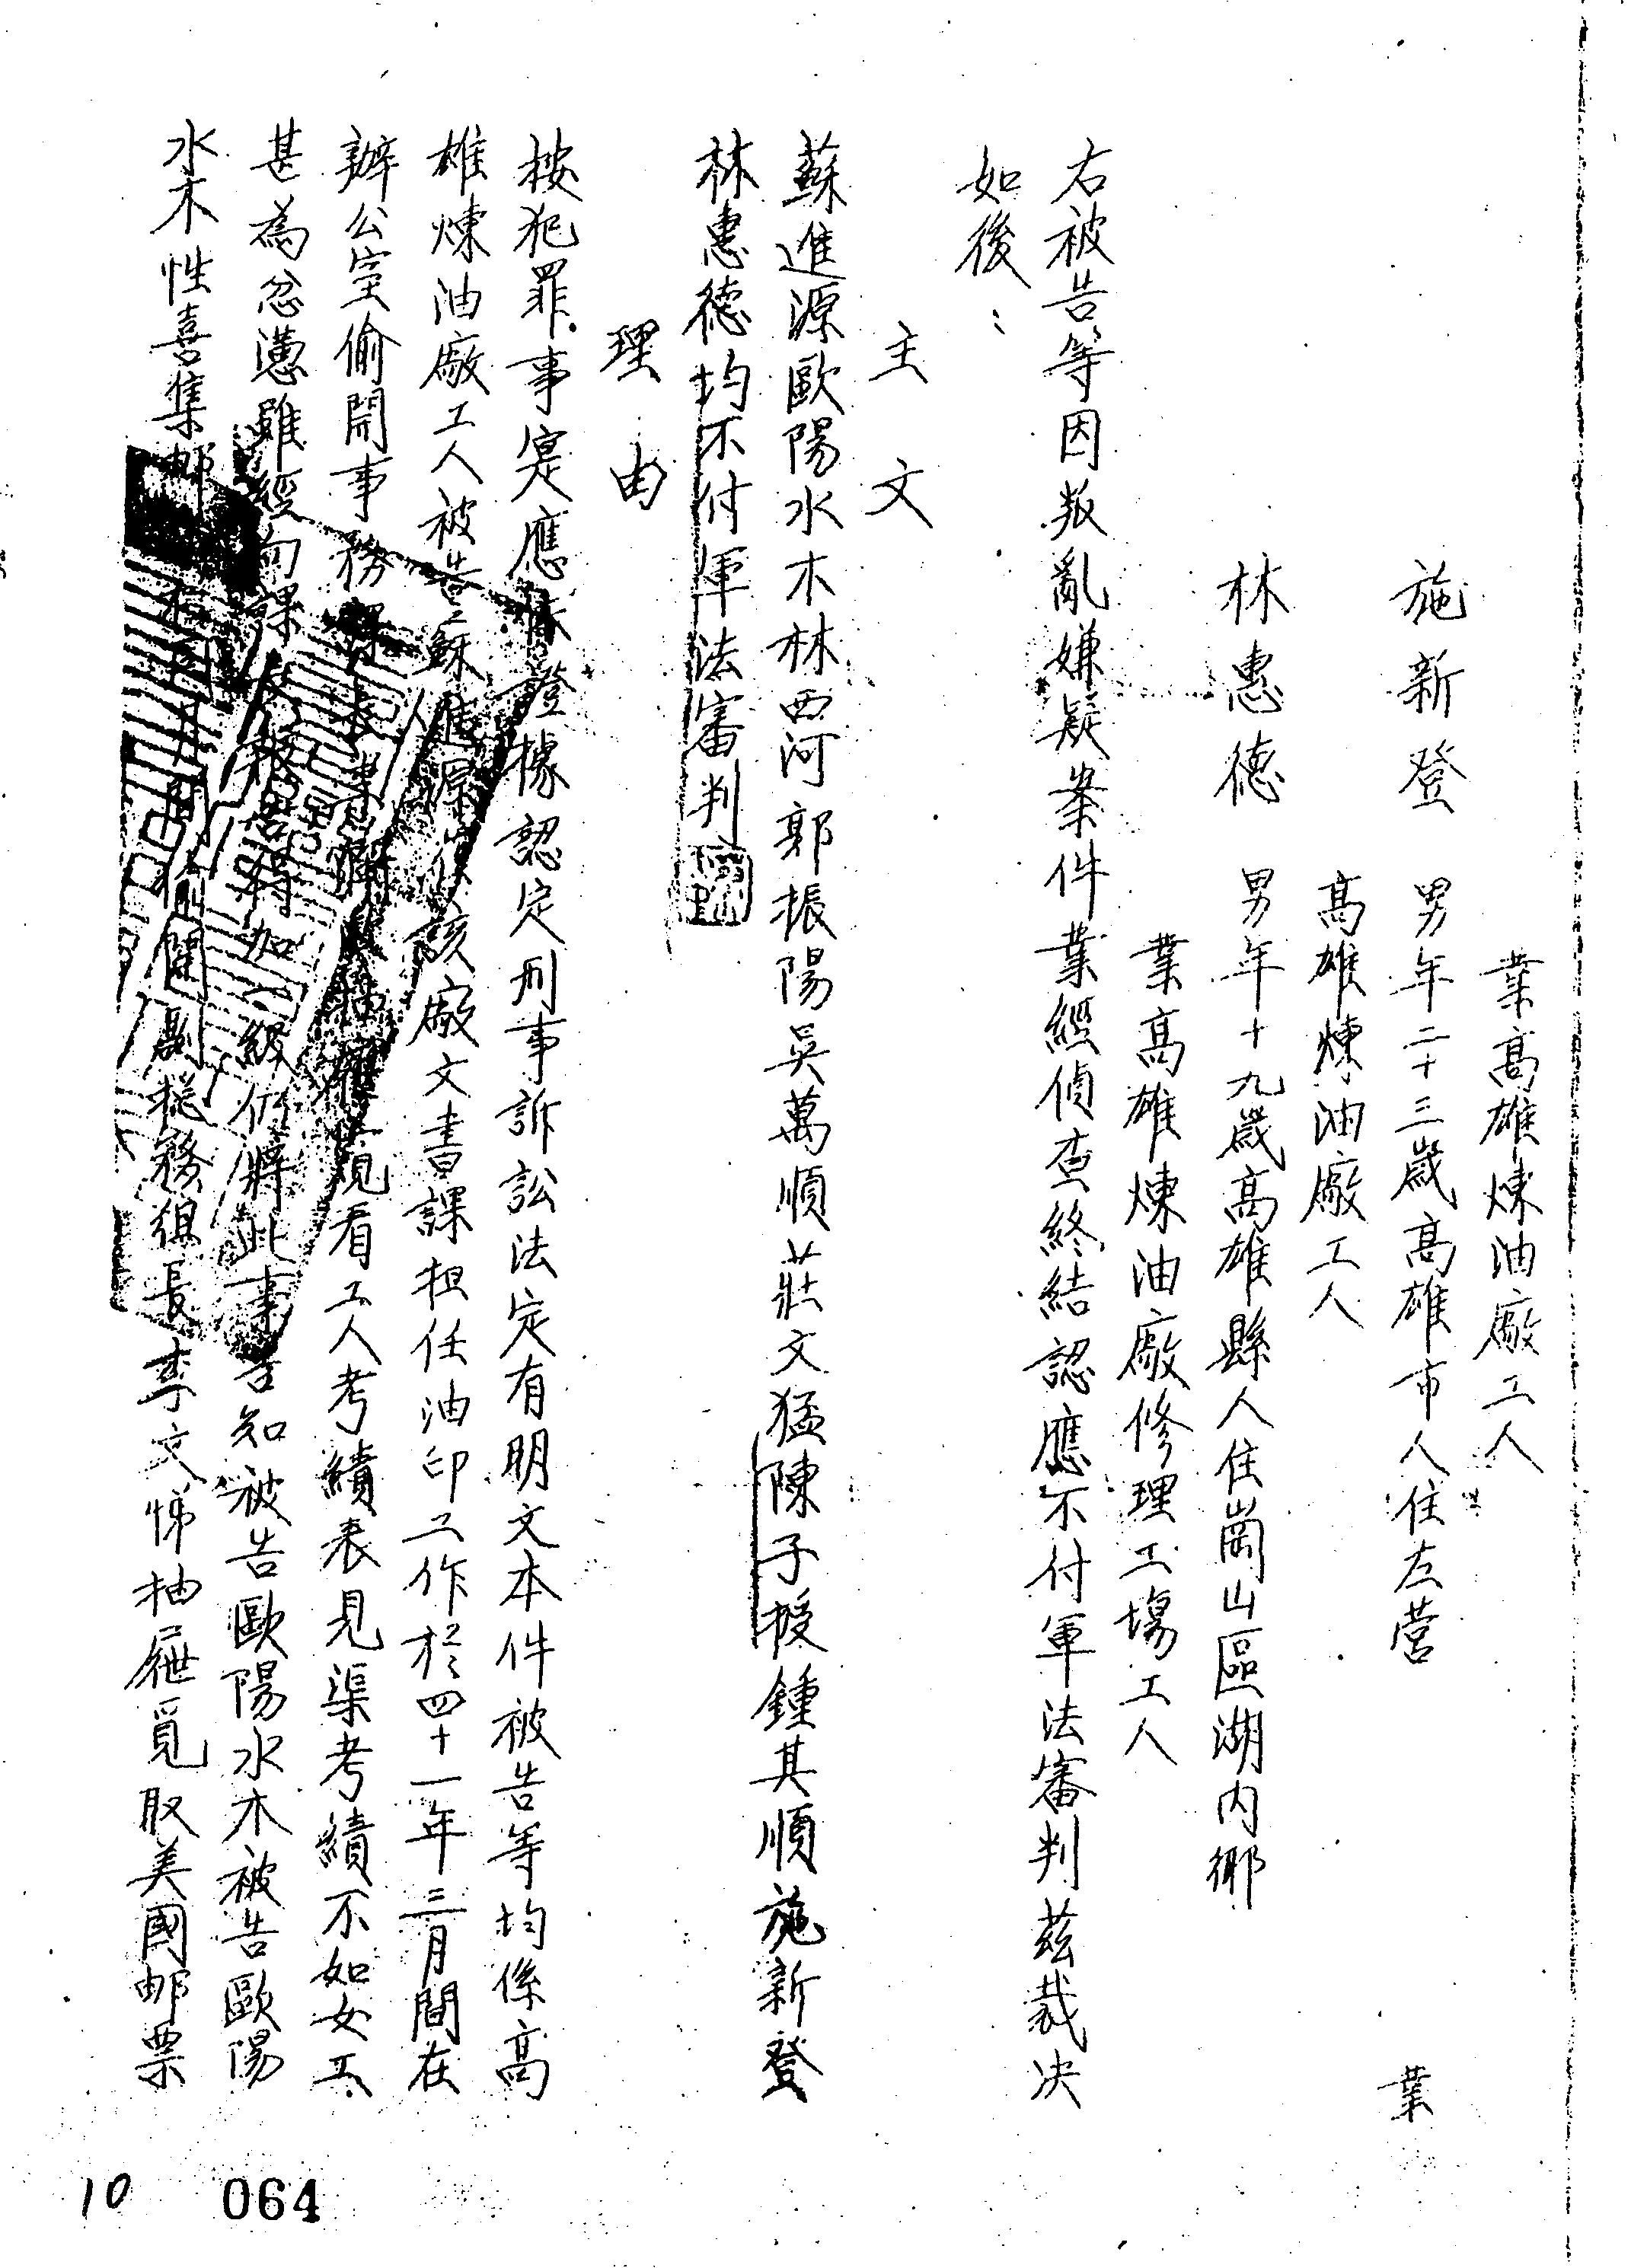 業高雄煉油廠工人
施新登 男年二十三歲高雄市人住左營 業
高雄煉油廠工人
林惠德 男年十九歲高雄縣人住崗山區湖内鄉
業高雄煉油廠修理工場工人
右被告等因叛亂嫌疑案件業經偵查終結認應不付軍法審判茲裁决
如後：
主文
蘇進源歐陽水木林西河郭振陽吳萬順莊文猛陳子授鍾其順施新登
林惠德均不付軍法審判
理由
按犯罪事寔應依證據認定刑事訴訟法定有明文本件被告等均係高
雄煉油廠工人被告蘇進源係該廠文書課担任油印工作於四十一年三月間在
辦公室偷開事務課長 看工人考績表見渠考績不如女工
甚為忿懣雖經向課長報告得加一級仍將此事告知被告歐陽水木被告歐陽
水木性喜集邮 月間偷開副總務組長李文悌抽屜覓取美國邮票
10 064